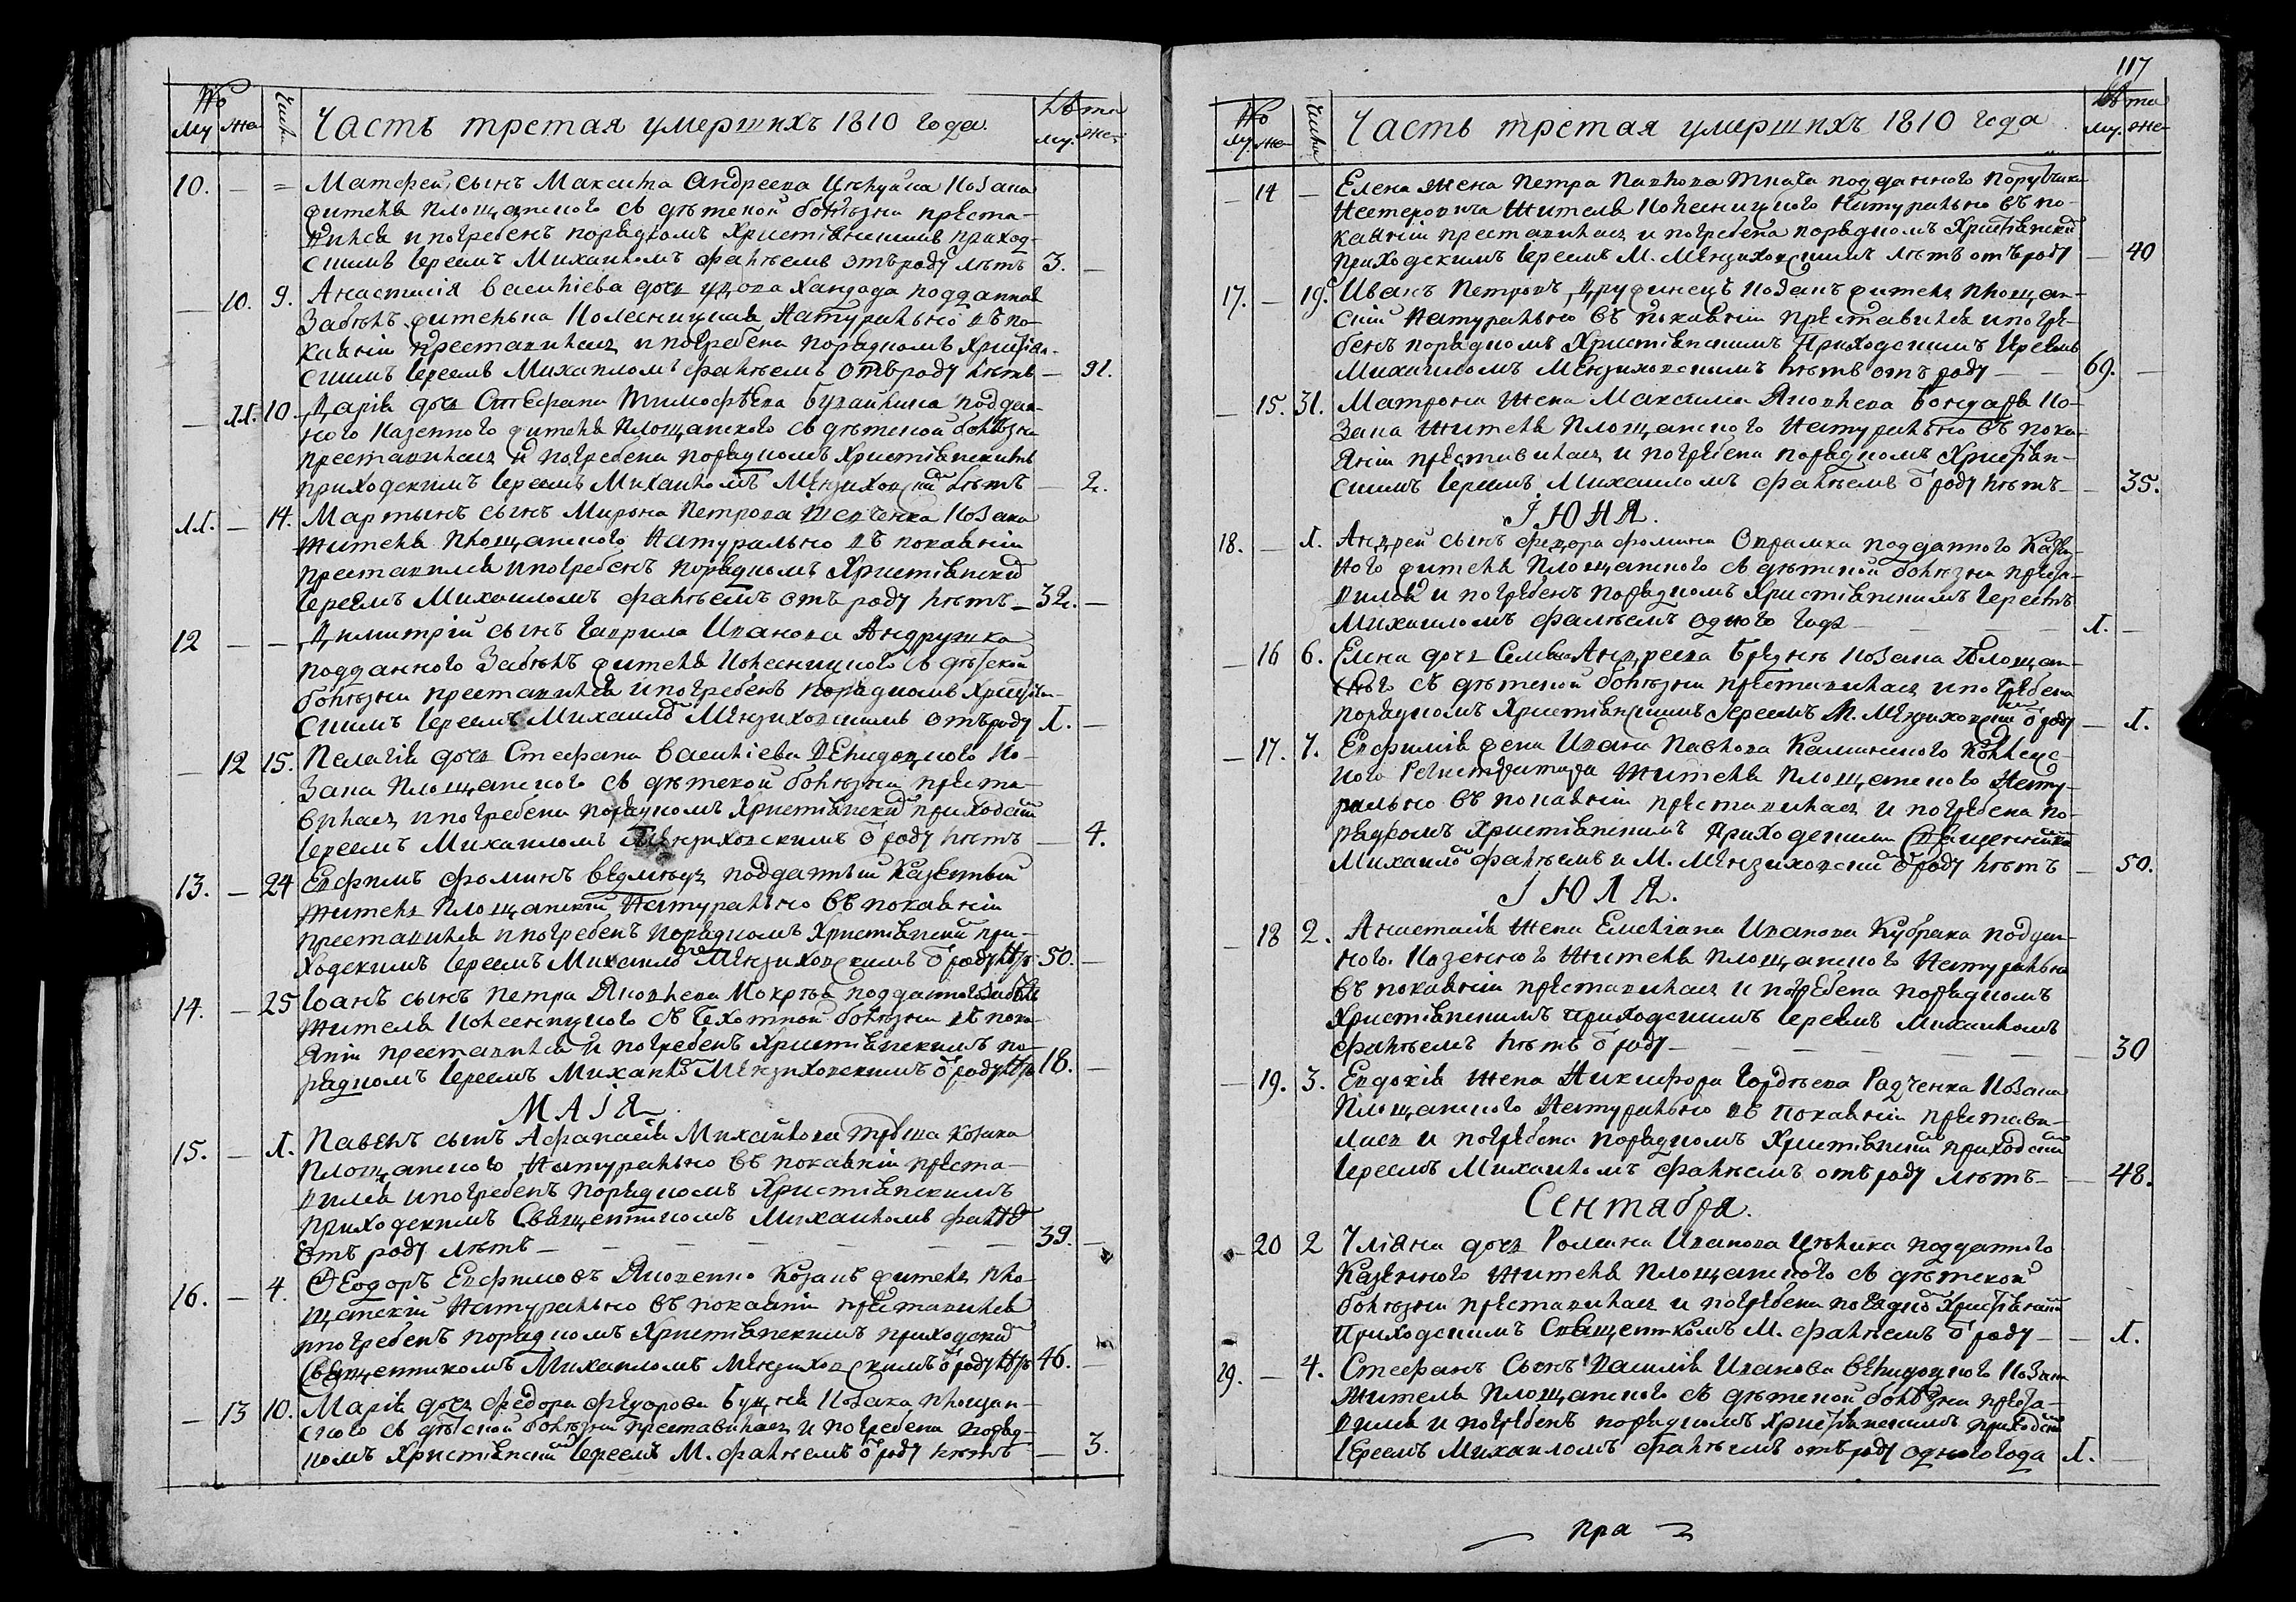 №
Му же
Числа
Часть третая умершихъ 1810 года.
Лѣта
му. же.
10. — = Матѳей сынъ Максима Андреева козака
жителя Площанского съ дѣтской болѣзни преста-
вился и погребенъ порядкомъ Христіянскимъ приход-
скимъ Іереемъ Михаиломъ Фалѣемъ отъ роду лѣтъ 3. —
— 10. 9. Анастасія Василіева дочь удова подданная
Забѣлъ жителька Колесницкая Натурально въ по-
каяніи преставилась и погребена порядкомъ Християн-
скимъ Іереемъ Михаиломъ Фалѣемъ отъ роду лѣтъ — 91.
— 11. 10. Дарія дочь Стефана Тимофѣева поддан-
ного Казенного жителя Площанского съ дѣтской болѣзни
преставилась и погребена порядкомъ Христіянскимъ
приходскимъ Іереемъ Михаиломъ Мензиховский лѣтъ — 2.
11. — 14. Мартынъ сынъ Мирона Петрова Шевченка Козака
жителя Площанского Натурально въ покаяніи
преставился и погребенъ порядкомъ Христіянский
Іереемъ Михаиломъ Фалѣемъ отъ роду лѣтъ — 32. —
12 — — Димитрій сынъ Гаврила Иванова Андрушка
подданного Забѣлъ жителя Колесницкого съ дѣтской
болѣзни преставился и погребенъ порядкомъ Християн-
скимъ Іереемъ Михаило Мензиховскимъ отъ роду 1. —
— 12 15. Пелагія дочь Стефана Василіева Великодного Ко-
зака Площанского съ дѣтской болѣзни преста-
вилась и погребена порядкомъ Христіянский приходский
Іереемъ Михаиломъ Мензиховскимъ о роду лѣтъ — 4.
13. — 24 Евфимъ Фоминъ подданный Казенный
житель Площанский Натурально въ покаяніи
преставился и погребенъ порядкомъ Христіянский при-
ходскимъ Іереемъ Михаило Мензиховскимъ о роду лѣтъ 50. —
14. — 25 Іоанъ сынъ Петра Яковлева подданного Забѣлъ
жителя Колесницкого съ болѣзни въ пока-
яніи преставился и погребенъ Христіянскимъ по-
рядкомъ Іереемъ Михаило Мензиховскимъ о роду лѣтъ 18. —
МАІЯ.
15. — 1. Павелъ сынъ Афанасія Михайлова Козака
Площанского Натурально въ покаяніи преста-
вился и погребенъ порядкомъ Христіянскимъ
приходскимъ Священникомъ Михаиломъ Фалѣ
отъ роду лѣтъ — — — — — 39. —
16. — 4. Ѳеодоръ Евфимовъ Яковенко Козакъ житель Пло-
щанский Натурально въ покаяніи преставился
и погребенъ порядкомъ Христіянскимъ приходский
Священникомъ Михаиломъ Мензиховскимъ о роду лѣтъ 46. —
— 13 10. Марія дочь Федора Федорова Козака Площан-
ского съ дѣтской болѣзни преставилась и погребена поряд-
комъ Христіянский Іереемъ М. Фалѣемъ о роду лѣтъ — 3.
117
№
му. же
Числа
Часть третая умершихъ 1810 года
Лѣта
му. же
— 14 — Елена жена Петра Павлова Ткача подданного Порутчика
Нестеровича жителя Колесницкого Натурально въ по-
каяніи преставилась и погребена порядкомъ Христіянский
приходскимъ Іереемъ М. Мензиховскимъ лѣтъ отъ роду — 40
17. — 19. Иванъ Петровъ Козакъ житель Площан-
скій Натурально въ покаяніи преставился и погре-
бенъ порядкомъ Христіянскимъ Приходскимъ Іереемъ
Михаиломъ Мензиховскимъ лѣтъ отъ роду — — 69. —
— 15. 31. Матрона жена Максима Яковлева Бондаря Ко-
зака жителя Площанского Натурально въ пока-
яніи преставилась и погребена порядкомъ Християн-
скимъ Іереемъ Михаиломъ Фалѣемъ о роду лѣтъ — — 35.
ІЮНЯ.
18. — 1. Андрей сынъ Федора Фомина подданного Казен-
ного жителя Площанского съ дѣтской болѣзни преста-
вился и погребенъ порядкомъ Христіянскимъ Іереемъ
Михаиломъ Фалѣемъ одного года — — — 1. —
— 16 6. Елена дочь Семена Андреева Козака Площан-
ского съ дѣтской болѣзни преставилась и погребена
порядкомъ Христіянскимъ Іереемъ М. Мензиховский о роду — 1.
— 17. 7. Евфимія жена Ивана Павлова Каминского Коллежс-
кого Регистратора жителя Площанского Нату-
рально въ покаяніи преставилась и погребена по-
рядкомъ Христіянскимъ Приходскими Священники
Михаило Фалѣемъ и М. Мензиховский о роду лѣтъ — 50.
ІЮЛЯ.
— 18 2. Анастасія жена Емелiана Иванова Кубрака поддан-
ного Казенного жителя Площанского Натурально
въ покаяніи преставилась и погребена порядкомъ
Христіянскимъ приходскимъ Іереемъ Михаиломъ
Фалѣемъ лѣтъ о роду — — — — — — 30
— 19. 3. Евдокія жена Никифора Гордѣева Радченка Козака
Площанского Натурально въ покаяніи престави-
лась и погребена порядкомъ Христіянский приходский
Іереемъ Михаиломъ Фалѣемъ отъ роду лѣтъ — — 48.
Сентября.
— 20 2 Уліяна дочь Романа Иванова подданного
Казенного жителя Площанского съ дѣтской
болѣзни преставилась и погребена порядко Християнский
Приходскимъ Священ-комъ М. Фалѣемъ о роду — — 1.
19. — 4. Стефанъ Сынъ Василія Иванова Великодного Козака
жителя Площанского съ дѣтской болѣзни преста-
вился и погребенъ порядкомъ Християнскимъ приходский
Іереемъ Михаиломъ Фалѣемъ отъ роду одного года 1. —
пра